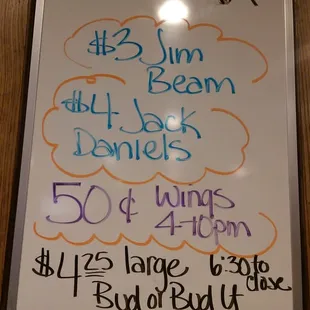 $3 Jim
Beam
$4 Jack
Daniels
50¢ Wings
4-10pm
$4.25 large 6:30 to
close
Bud or Bud Lt